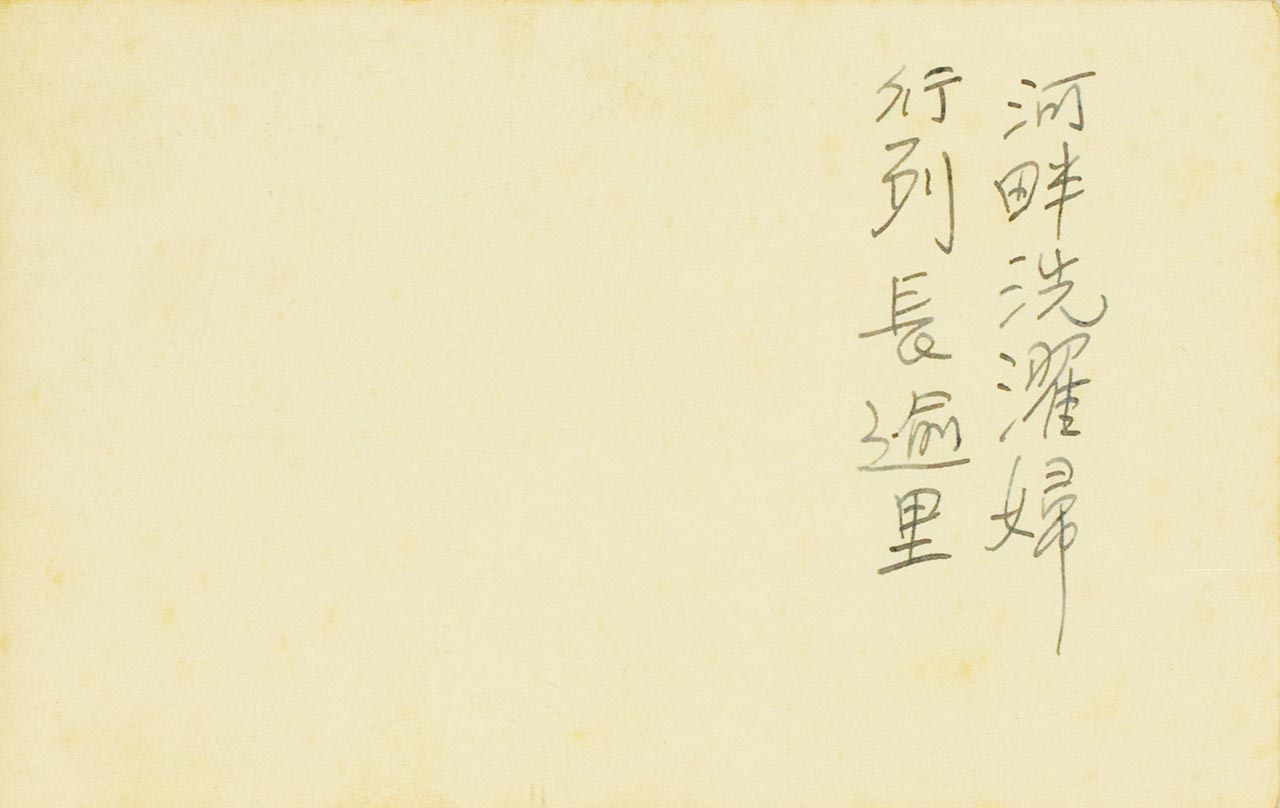 河畔洗濯婦
行列長逾里